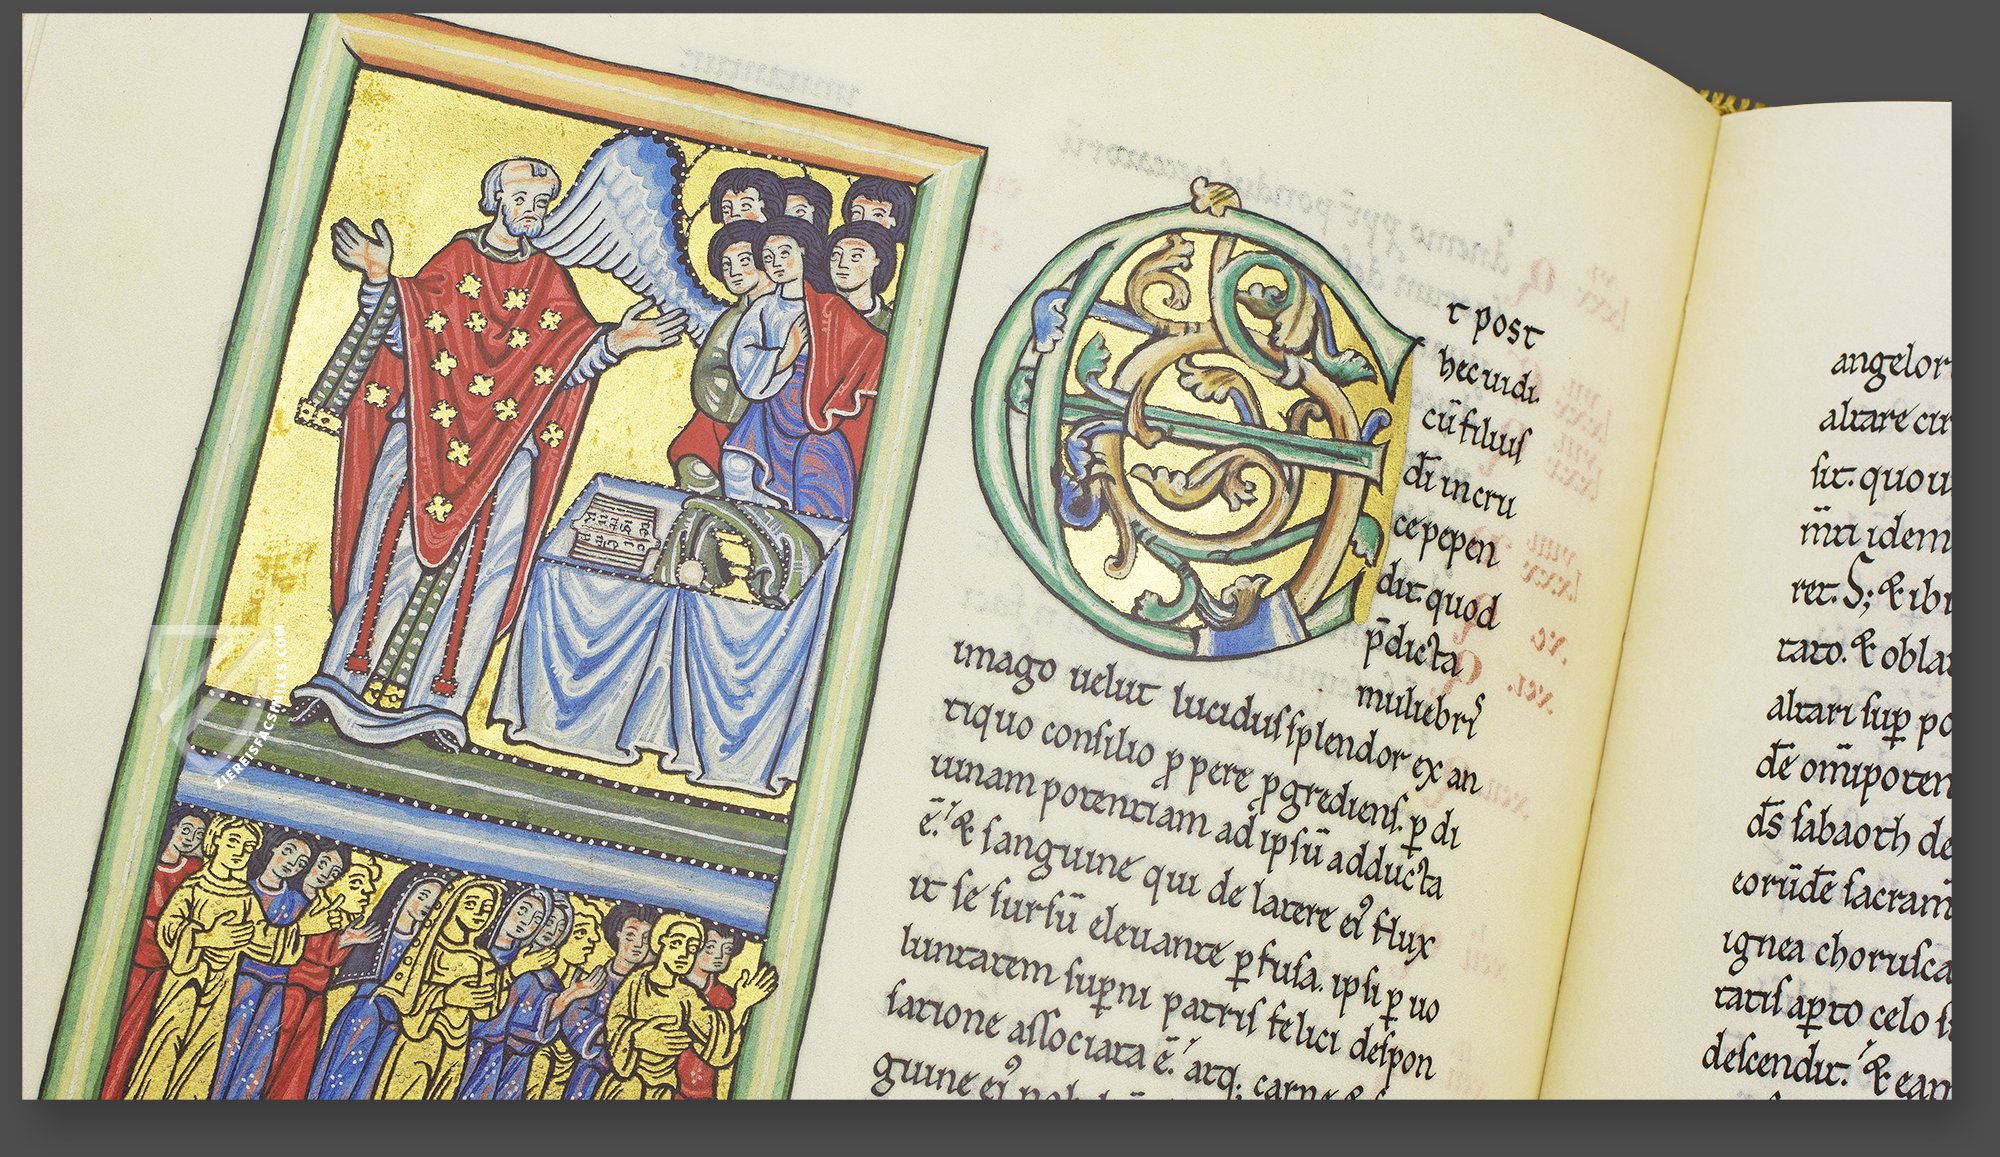 t post
hec uidi.
cū filiuſ
dī in cru
ce pepen
dit. quod
p̄dicta
muliebriſ
imago uelut luciduſ ſplendor ex an
tiquo conſilio ꝓpere ꝓgredienſ. ꝑ di
uinam potentiam ad ipſū adducta
ē. & ſanguine qui de latere eiꝰ flux
it ſe ſurſū eleuante ꝑfuſa. ipſi ꝑ uo
luntatem ſuꝑni patriſ felici deſpon
ſatione aſſociata ē. atq; carne &
guine eiꝰ
angelor
altare cir
ſit. quo u
m̄ri idem
ret. S; & ibi
tato. & obla
altari ſuꝑ po
dē om̄ipoten
dſ̄ ſabaoth de
eorūdē ſacram̄
ignea choruſca
tatiſ aꝑto celo ſ
deſcendit. & eam
ZIEREISFACSIMILES.COM